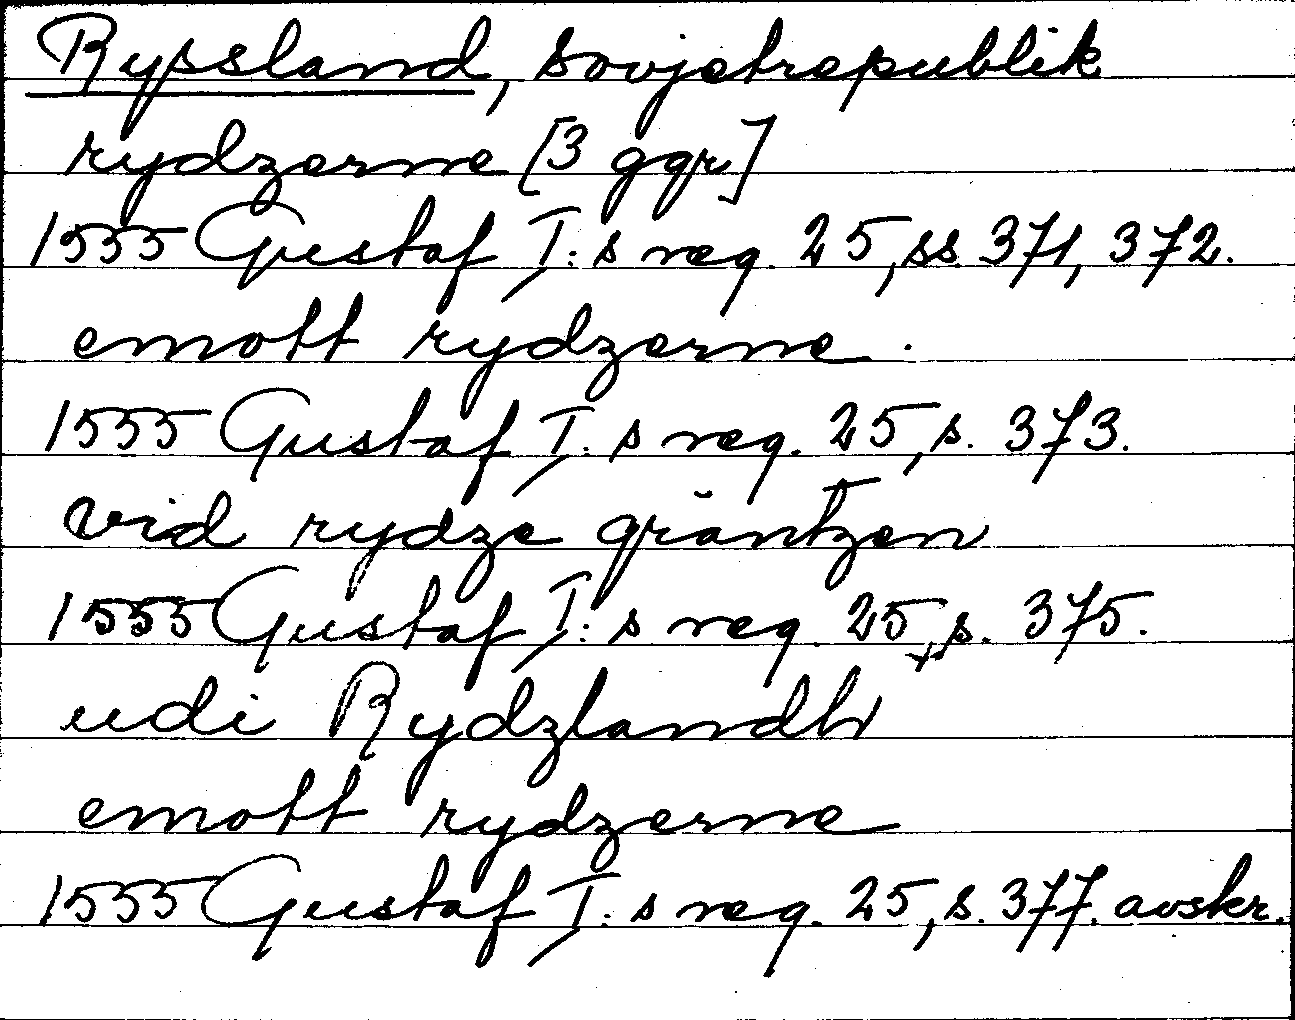 Ryssland, sovjetrepublik
rydzerne [3 ggr]
1555 Gustaf I:s reg. 25, ss. 371, 372.
emott rydzerne.
1555 Gustaf I:s reg. 25, s. 373.
vid rydze gräntzen
1555 Gustaf I:s reg. 25, s. 375.
udi Rydzlandh
emott rydzerne
1555 Gustaf I:s reg. 25, s. 377. avskr.